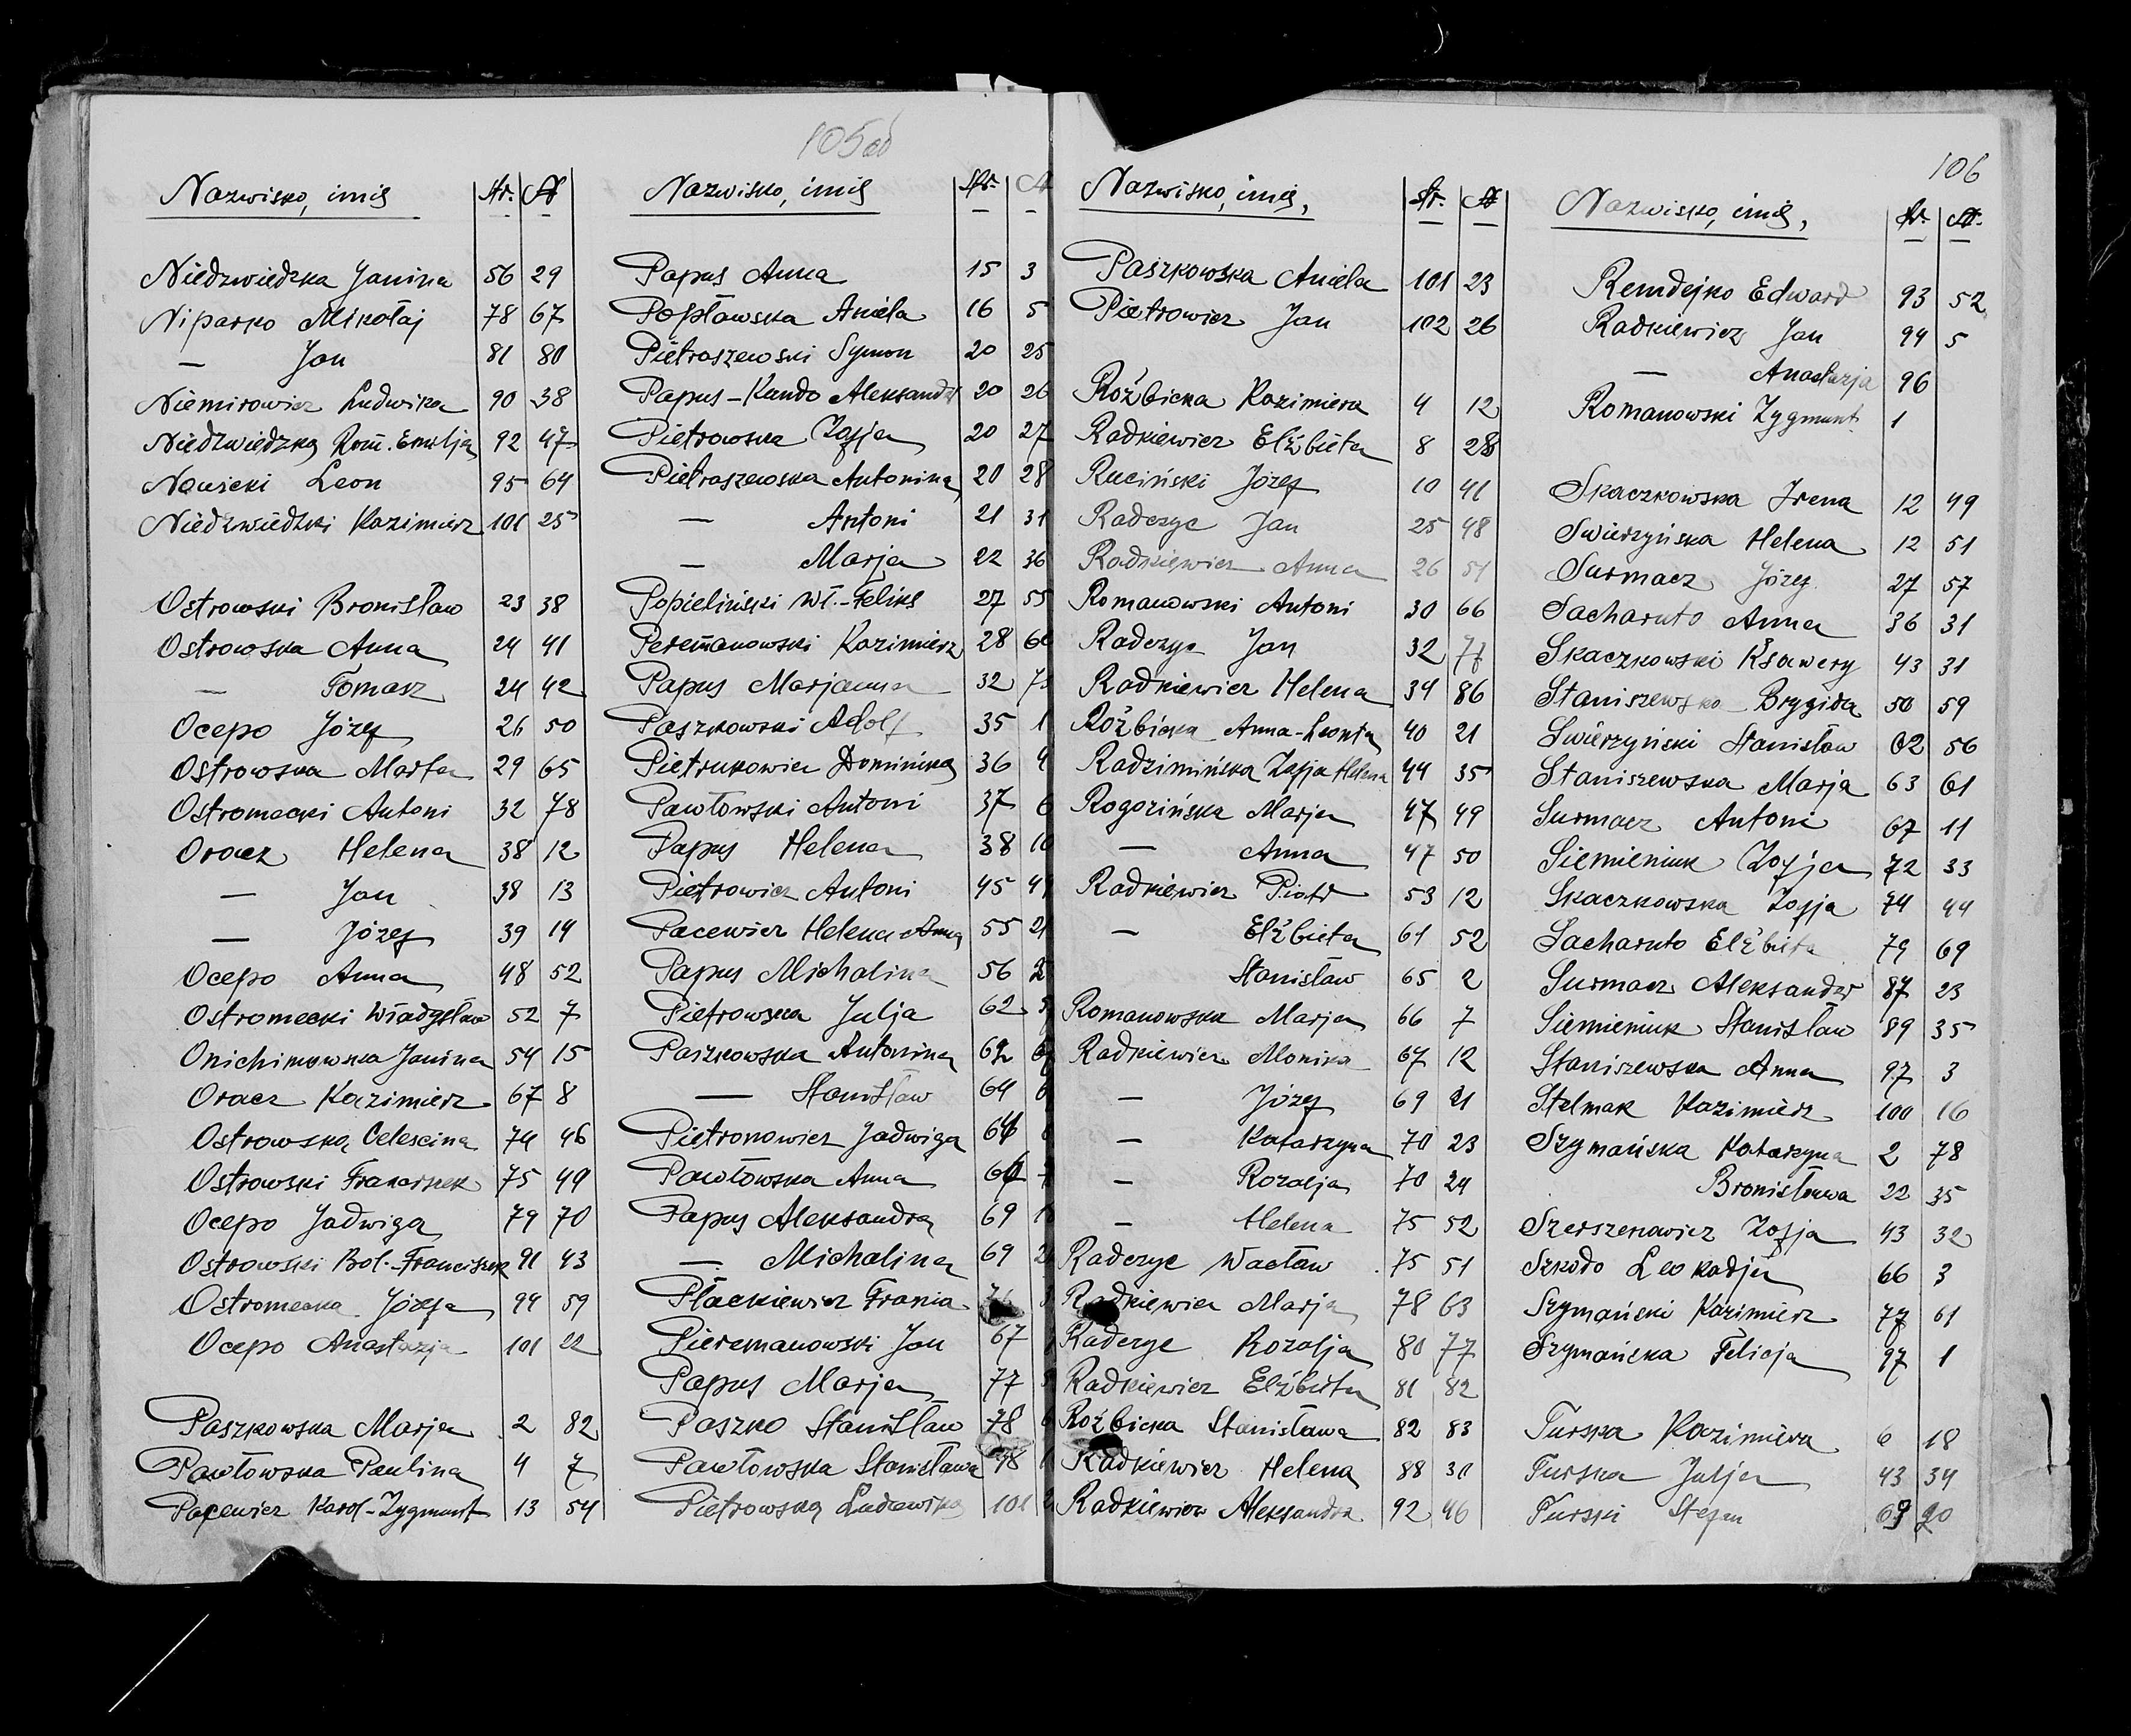 105 об
106
Nazwisko, imię Str. №
Niedzwiedzka Janina 56 29
Niparko Mikołaj 78 67
— Jan 81 80
Niemirowicz Ludwika 90 38
Niedzwiedzka Rom. Emilja 92 47
Nowicki Leon 95 64
Niedzwiedzki Kazimierz 101 25
Ostrowski Bronisław 23 38
Ostrowska Anna 24 41
— Tomasz 24 42
Ocepo Józef 26 50
Ostrowska Marta 29 65
Ostromecki Antoni 32 78
Oracz Helena 38 12
— Jan 38 13
— Józef 39 14
Ocepo Anna 48 52
Ostromecki Władysław 52 7
Onichimowska Janina 54 15
Oracz Kazimierz 67 8
Ostrowska Celescina 74 46
Ostrowski Franciszek 75 49
Ocepo Jadwiga 79 70
Ostrowski Bol.-Franciszek 91 43
Ostromecka Józefa 94 59
Ocepo Anastazja 101 22
Paszkowska Marja 2 82
Pawłowska Paulina 4 7
Pacewicz Karol-Zygmunt 13 54
Nazwisko, imię Str. №
Papus Anna 15 3
Popławska Aniela 16 5
Pietraszewski Symon 20 25
Papus-Kundo Aleksandr 20 26
Pietrowska Zofja 20 27
Pietraszewska Antonina 20 28
— Antoni 21 31
— Marja 22 36
Popieliński Wł.-Feliks 27 55
Peremanowski Kazimierz 28 60
Papus Marjanna 32
Paszkowski Adolf 35 1
Pietrukowicz Dominika 36
Pawłowski Antoni 37 6
Papus Helena 38 10
Pietrowicz Antoni 45
Pacewicz Helena Anna 55
Papus Michalina 56
Pietrowska Julja 62
Paszkowska Antonina
— Stanisław 64
Pietronowicz Jadwiga
Pawłowska Anna
Papus Aleksandra 69
— Michalina 69
Płackiewicz Frania
Pieremanowski Jan 67
Papus Marja 77
Paszko Stanisław 78
Pawłowska Stanisława 98
Pietrowska Ludwika 101
Nazwisko, imię, Str. №
Paszkowska Aniela 101 23
Pietrowicz Jan 102 26
Różbicka Kazimiera 4 12
Radkiewicz Elżbieta 8 28
Ruciński Józef 10 41
Radczyc Jan 25 48
Radkiewicz Anna 26 51
Romanowski Antoni 30 66
Radczyc Jan 32 77
Radkiewicz Helena 34 86
Różbicka Anna-Leonia 40 21
Radzimińska Zofja Helena 44 35
Rogozińska Marja 47 49
— Anna 47 50
Radkiewicz Piotr 53 12
— Elżbieta 61 52
Stanisław 65 2
Romanowska Marja 66 7
Radkiewicz Monika 67 12
— Józef 69 21
— Katarzyna 70 23
— Rozalja 70 24
— Helena 75 52
Radczyc Wacław 75 51
Radkiewicz Marja 78 63
Radczyc Rozalja 80 77
Radkiewicz Elżbieta 81 82
Różbicka Stanisława 82 83
Radkiewicz Helena 88 30
Radkiewicz Aleksandra 92 46
Nazwisko, imię, Str. №.
Remdejko Edward 93 52
Radkiewicz Jan 94 5
— Anastazja 96
Romanowski Zygmunt 1
Skaczkowska Irena 12 49
Swierzyńska Helena 12 51
Surmacz Józef 27 57
Sacharuto Anna 36 31
Skaczkowski Ksawery 43 31
Staniszewska Brygida 50 59
Swierzyński Stanisław 62 56
Staniszewska Marja 63 61
Surmacz Antoni 67 11
Siemieniuk Zofja 72 33
Skaczkowska Zofja 74 44
Sacharuto Elżbieta 79 69
Surmacz Aleksander 87 23
Siemieniuk Stanisław 89 35
Staniszewska Anna 97 3
Stelmak Kazimierz 100 16
Szymańska Katarzyna 2 78
Bronisława 22 35
Szerszenowicz Zofja 43 32
Szkodo Leokadja 66 3
Szymański Kazimierz 77 61
Szymańska Felicja 97 1
Turska Kazimiera 6 18
Turska Julja 43 34
Turski Stefan 69 20